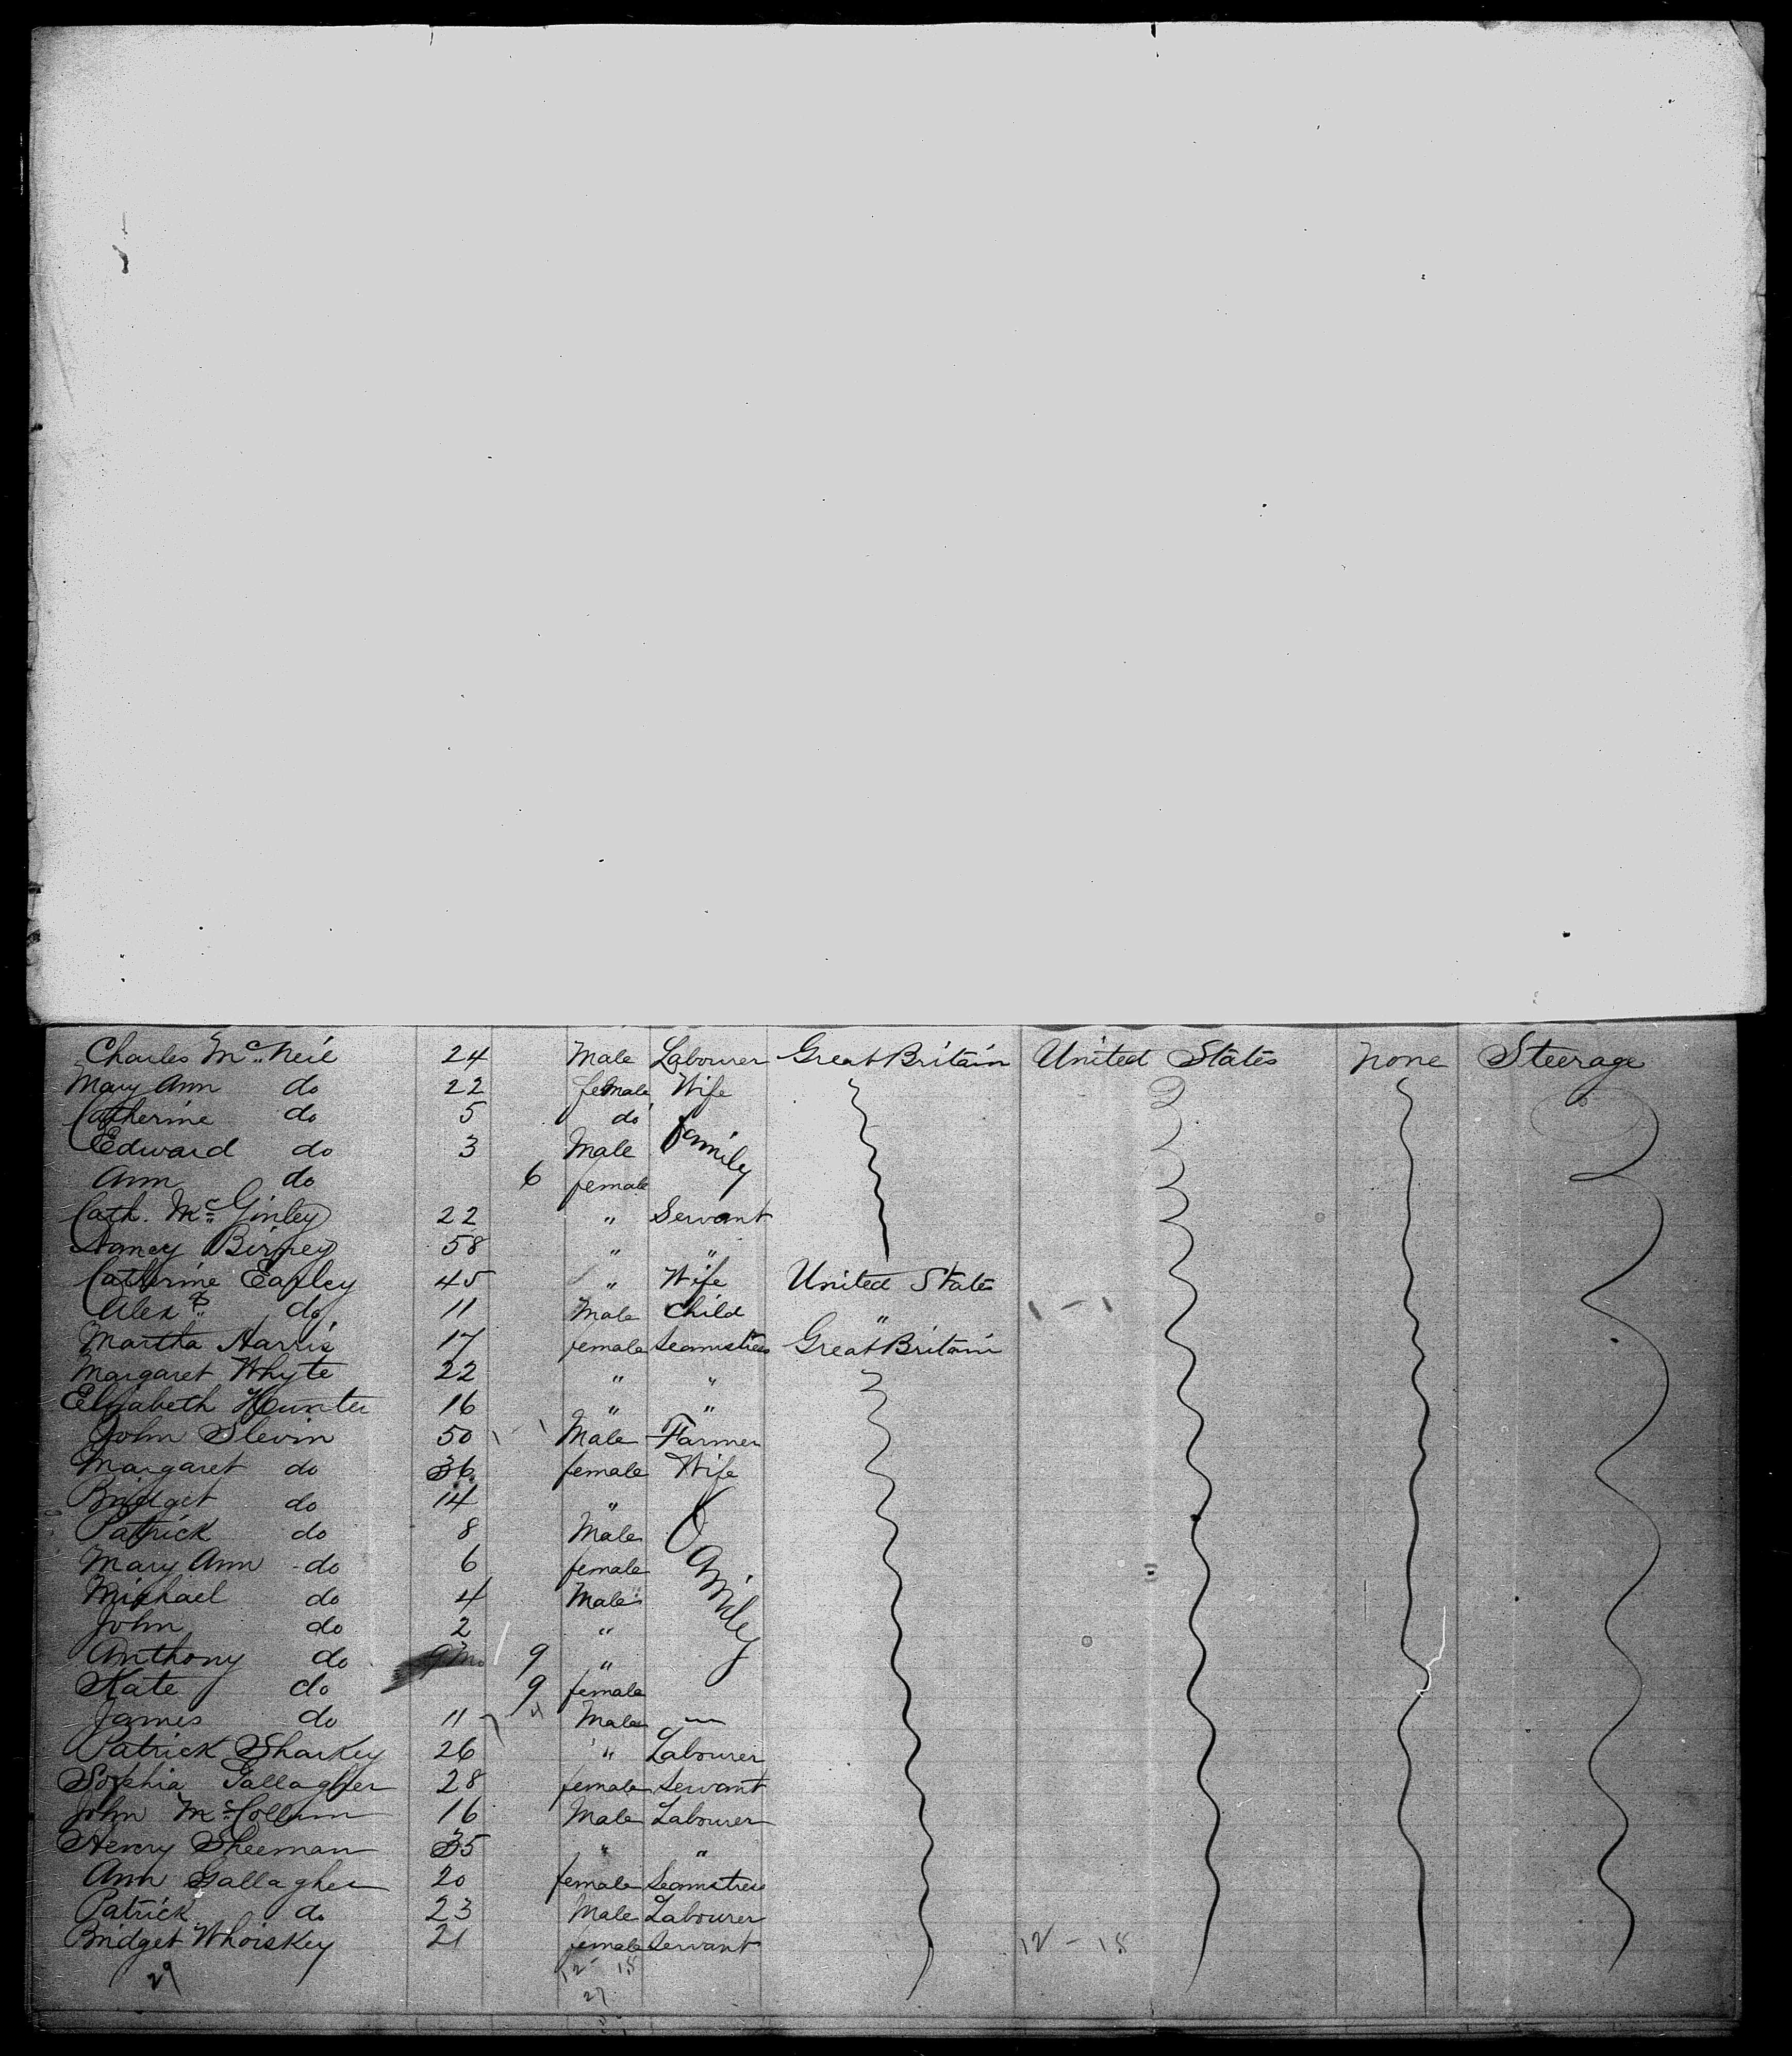 Charles Mc Neil 24 Male Labourer Great Britain United States none Steerage
Mary Ann do 22 female Wife
Catherine do 5 do family
Edward do 3 Male
Ann do 6 female
Cath. Mc Ginley 22 " Servant
Nancy Birney 58 " "
Catherine Earley 45 " Wife United States
Alexr do 11 Male Child "
Martha Harris 17 female Seamstress Great Britain
Margaret Whyte 22 " "
Elizabeth Hunter 16 " "
John Slevin 50 Male Farmer
Margaret do 36 female Wife
Bridget do 14 " Family
Patrick do 8 Male
Mary Ann do 6 female
Michael do 4 Male
John do 2 "
Anthony do 9 "
Kate do 9 female
James do 11 Male
Patrick Sharkey 26 " Labourer
Sophia Gallagher 28 female Servant
John Mc Collum 16 Male Labourer
Henry Sheeman 35 " "
Ann Gallagher 20 female Seamstress
Patrick do 23 Male Labourer
Bridget Whoiskey 21 female Servant 12 - 18
29 12 - 18